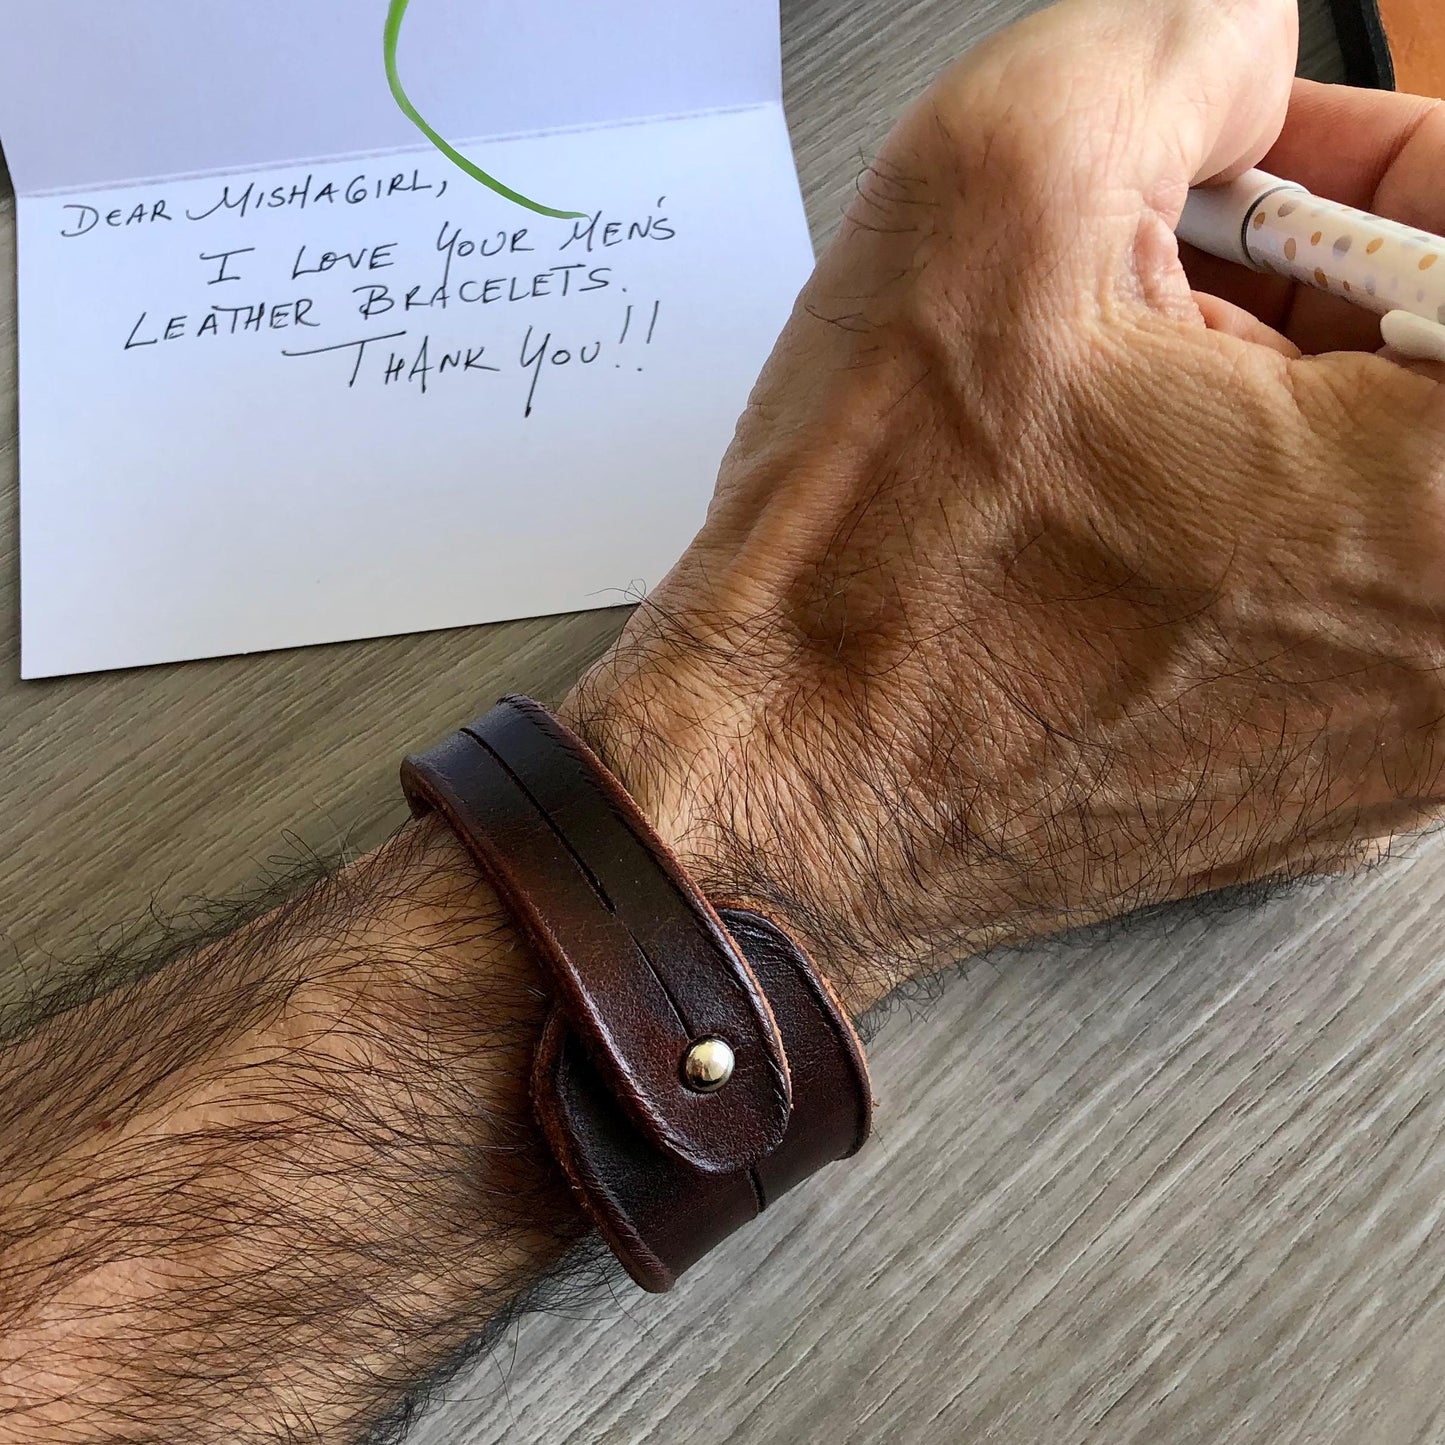 DEAR MISHAGIRL,
I LOVE YOUR MEN'S
LEATHER BRACELETS.
THANK YOU!!